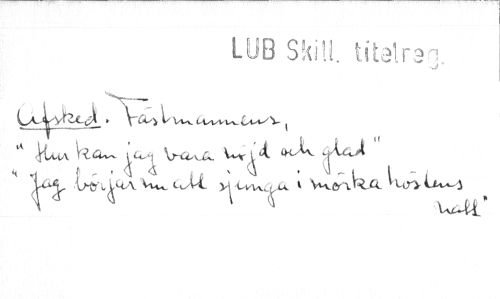 LUB Skill. titelreg.
Afsked. Fästmannens,
"Hur kan jag vara nöjd och glad"
"Jag börjar nu att sjunga i mörka höstens
natt"